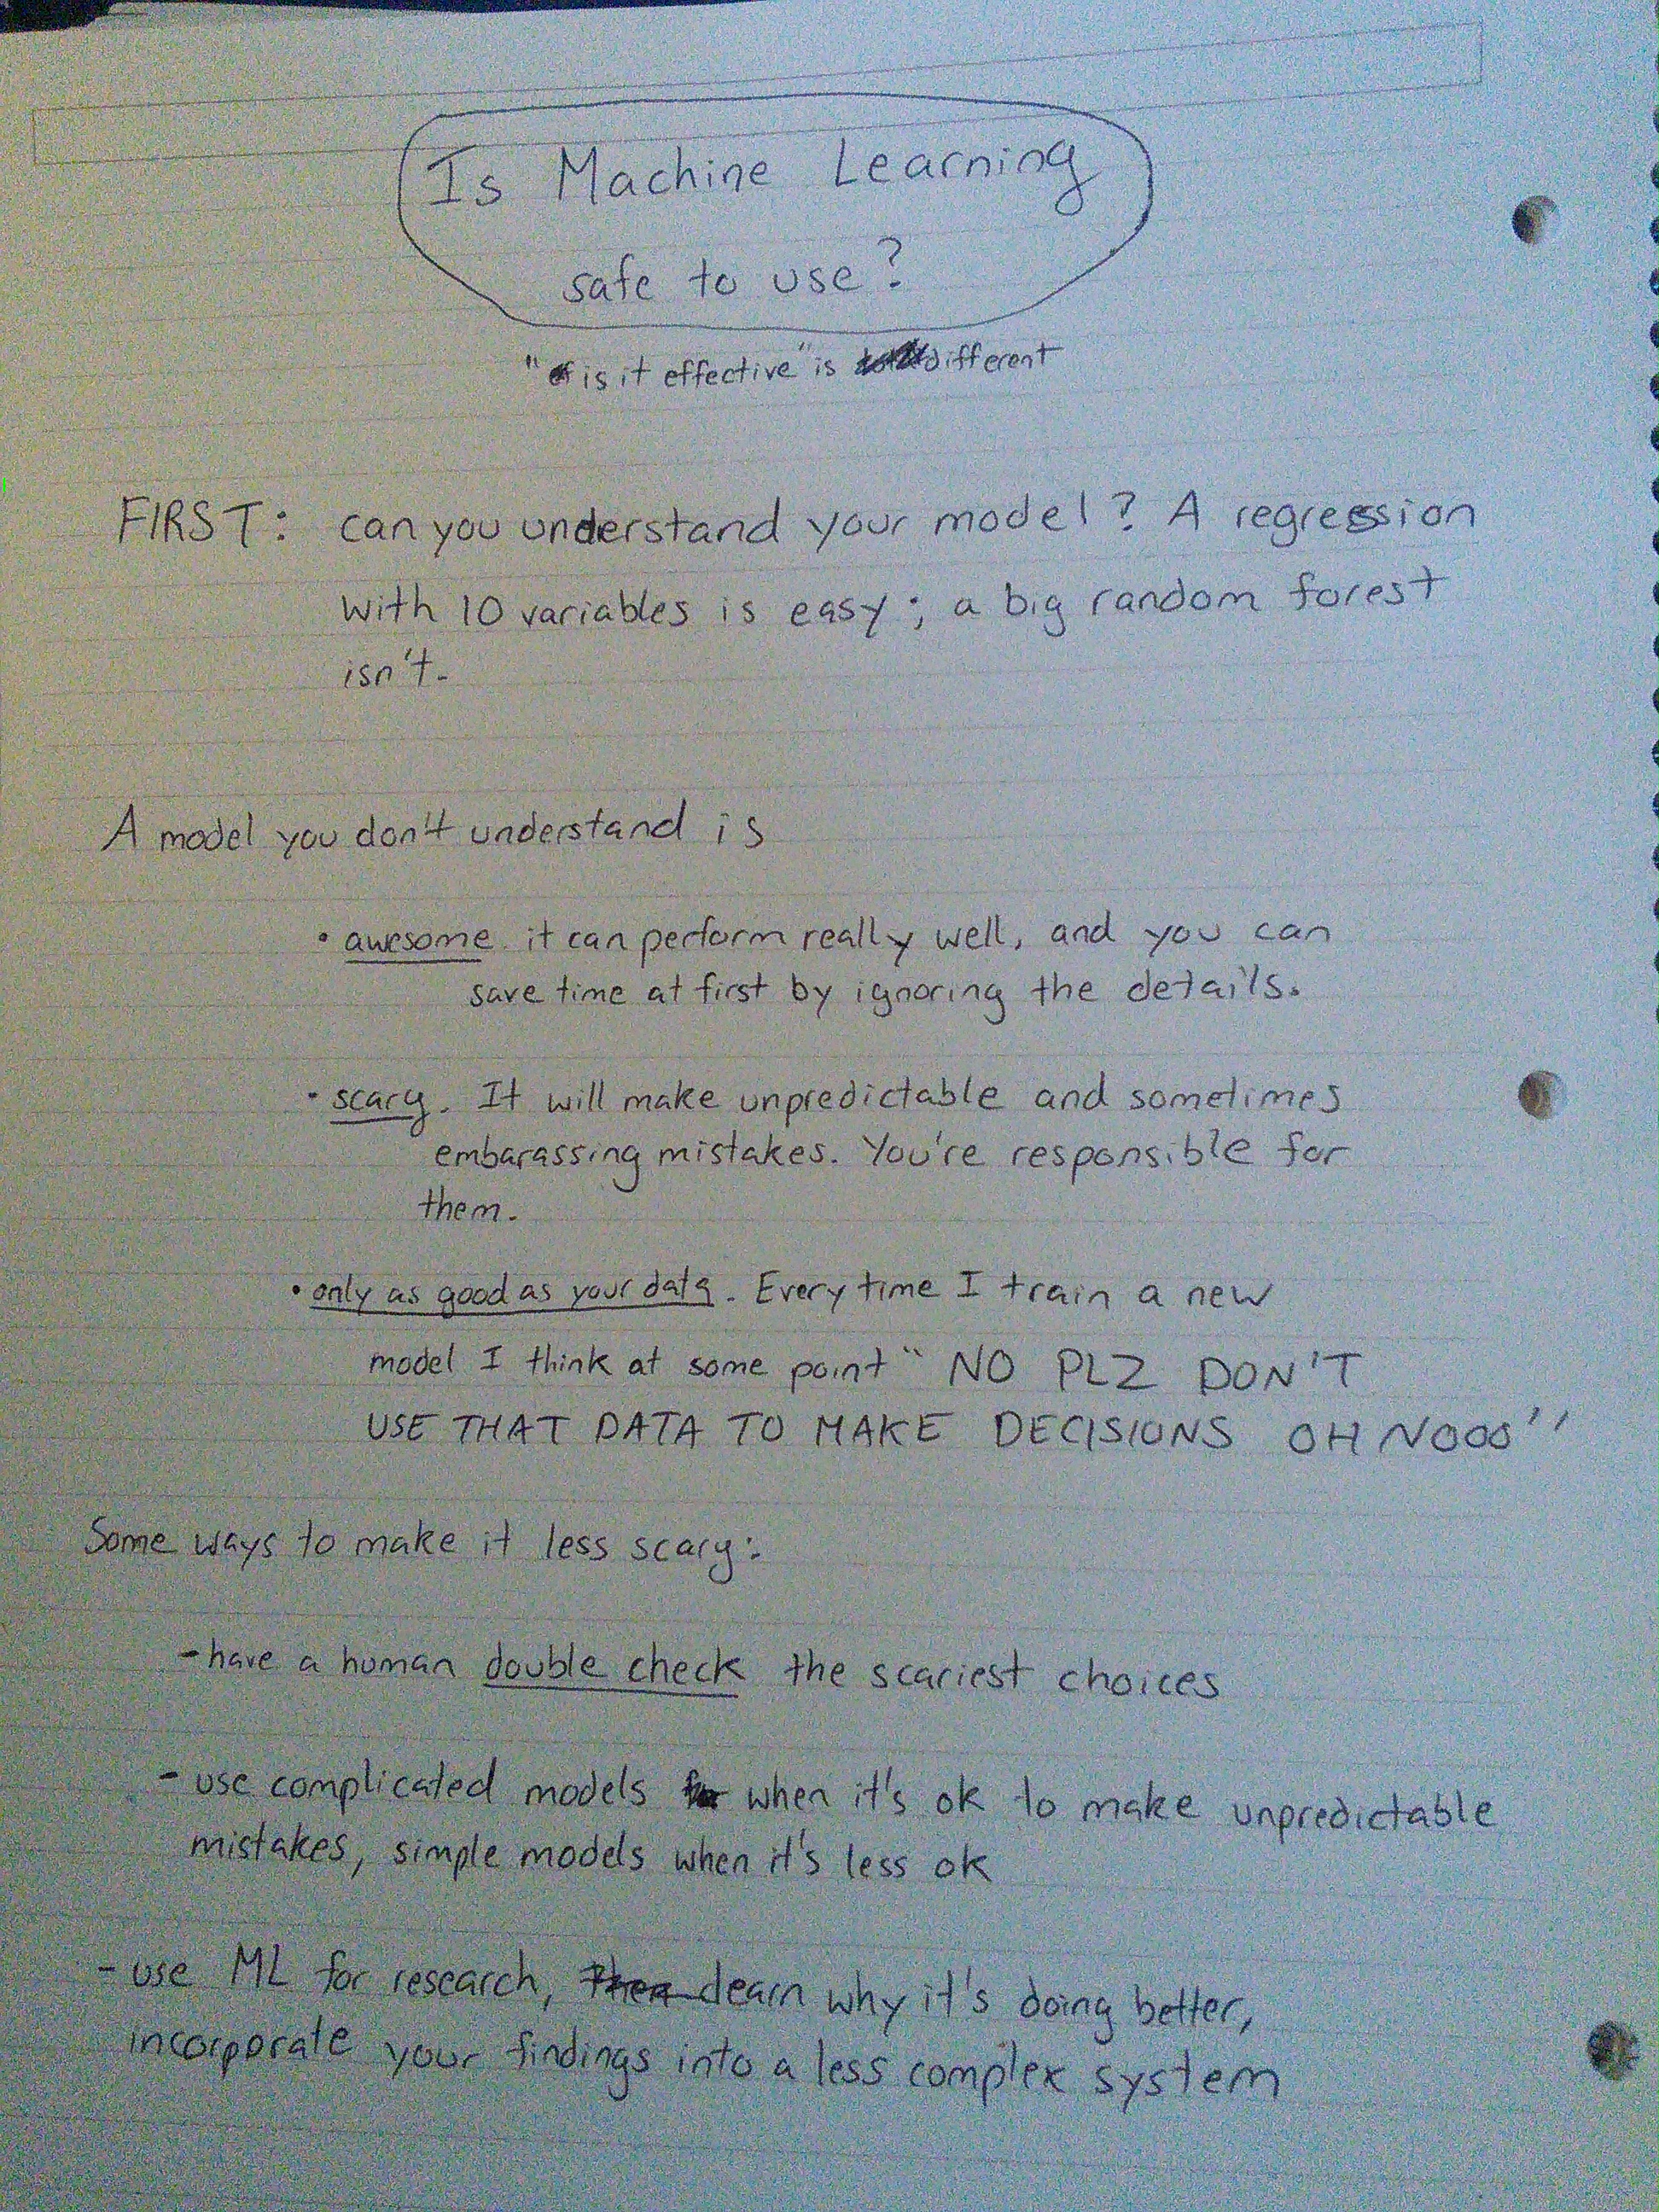 Is Machine Learning
safe to use?
"is it effective" is different
FIRST: can you understand your model? A regression
with 10 variables is easy; a big random forest
isn't.
A model you don't understand is
• awesome. it can perform really well, and you can
save time at first by ignoring the details.
• scary. It will make unpredictable and sometimes
embarassing mistakes. You're responsible for
them.
• only as good as your data. Every time I train a new
model I think at some point "NO PLZ DON'T
USE THAT DATA TO MAKE DECISIONS OH NOOO"
Some ways to make it less scary:
- have a human double check the scariest choices
- use complicated models when it's ok to make unpredictable
mistakes, simple models when it's less ok
- use ML for research, learn why it's doing better,
incorporate your findings into a less complex system